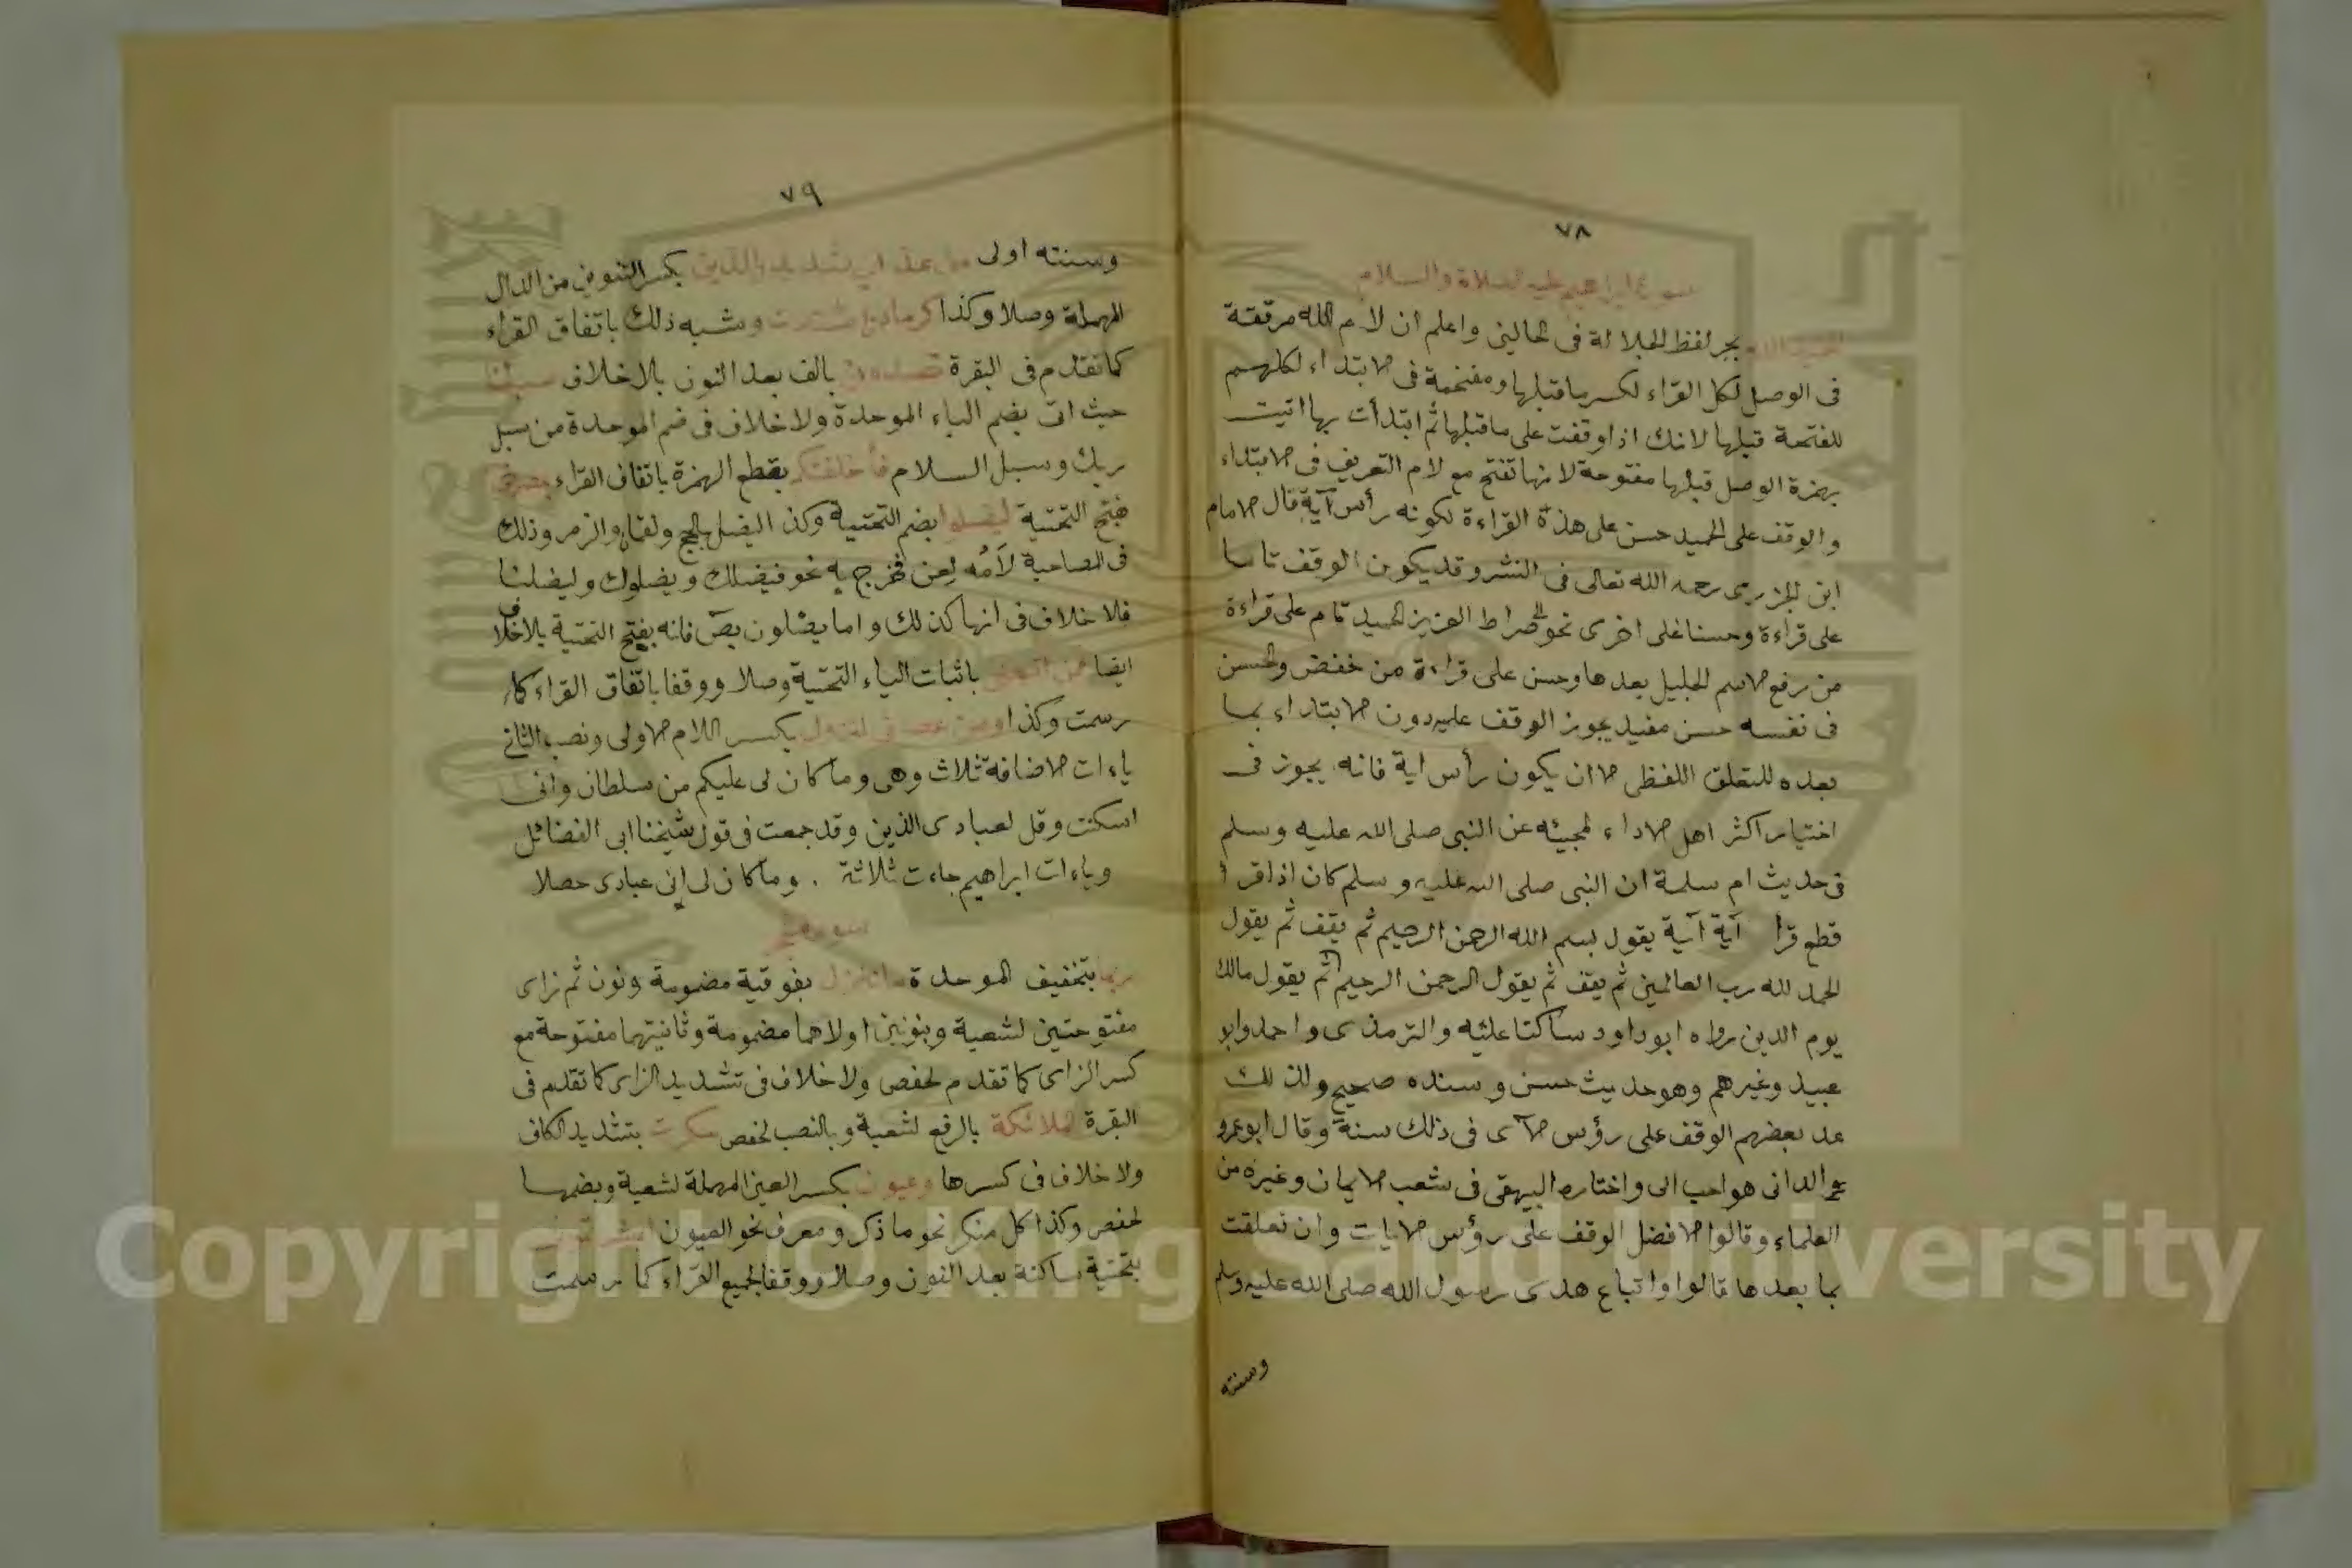 ٧٨
سورة ابراهيم عليه الصلاة والسلام
الحميد الله بجر لفظ الجلالة فى الحالين واعلم ان لام الله مرققة
فى الوصل لكل القراء لكسر ما قبلها ومفخمة فى الابتداء لكلهم
للفتحة قبلها لانك اذا وقفت على ما قبلها ثم ابتدأت بها اتيت
بهمزة الوصل قبلها مفتوحة لانها تفتح مع لام التعريف فى الابتداء
والوقف على الحميد حسن على هذه القراءة لكونه رأس آية قال الامام
ابن الجزرى رحمه الله تعالى فى النشر وقد يكون الوقف تاما
على قراءة وحسنا على اخرى نحو الى صراط العزيز الحميد تام على قراءة
من رفع الاسم الجليل بعدها وحسن على قراءة من خفض والحسن
فى نفسه حسن مفيد يجوز الوقف عليه دون الابتداء بما
بعده للتعلق اللفظى الا ان يكون رأس اية فانه يجوز فى
اختيار اكثر اهل الاداء لمجيئه عن النبى صلى الله عليه وسلم
فى حديث ام سلمة ان النبى صلى الله عليه وسلم كان اذا قرأ
قطع قرأ آية آية يقول بسم الله الرحمن الرحيم ثم يقف ثم يقول
الحمد لله رب العالمين ثم يقف ثم يقول الرحمن الرحيم ثم يقول مالك
يوم الدين رواه ابو داود ساكتا عليه والترمذى واحمد وابو
عبيد وغيرهم وهو حديث حسن وسنده صحيح ولذلك
عد بعضهم الوقف على رؤس الآى فى ذلك سنة وقال ابو عمرو
الدانى هو احب الى واختاره البيهقى فى شعب الايمان وغيره من
العلماء وقالوا الافضل الوقف على رؤس الايات وان تعلقت
بما بعدها قالوا واتباع هدى رسول الله صلى الله عليه وسلم
وسنته
٧٩
وسنته اولى بكسر التنوين من الدال
المهملة وصلا وكذا كرماد وشبه ذلك باتفاق القراء
كما تقدم فى البقرة تصدونا بالف بعد النون بلا خلاف سبلنا
حيث اتى بضم الباء الموحدة ولا خلاف فى ضم الموحدة من سبل
ربك وسبل السلام فأخلفتكم بقطع الهمزة باتفاق القراء بمصرخى
بفتح التحتية ليضلوا بضم التحتية وكذا ليضل بالحج ولقمان والزمر وذلك
فى المصاحبة لأمه لعن فخرج به نحو فيضلك ويضلوك وليضلنا
فلا خلاف فى انها كذلك واما يضلون بص فانه بفتح التحتية بلا خلاف
ايضا فمن اتبعنى باثبات الياء التحتية وصلا ووقفا باتفاق القراء كما
رسمت وكذا ومن عصانى لتزول بكسر اللام الاولى ونصب الثانى
ياءات الاضافة ثلاث وهى وما كان لى عليكم من سلطان وانى
اسكنت وقل لعبادى الذين وقد جمعت فى قول شيخنا ابى الفضائل
وياءات ابراهيم جاءت ثلاثة . وما كان لى انى عبادى حصلا
سورة الحجر
ربما بتخفيف الموحدة ما تنزل بفوقية مضمومة ونون ثم زاى
مفتوحتين لشعبة وبنونين اولاهما مضمومة وثانيتهما مفتوحة مع
كسر الزاى كما تقدم لحفص ولا خلاف فى تشديد الزاى كما تقدم فى
البقرة الملائكة بالرفع لشعبة وبالنصب لحفص سكرت بتشديد الكاف
ولا خلاف فى كسرها وعيون بكسر العين المهملة لشعبة وبضمها
لحفص وكذا كل منكر نحو ما ذكر ومعرف نحو العيون ابشرتمونى
بتحتية ساكنة بعد النون وصلا ووقفا لجميع القراء كما رسمت
Copyright © King Saud University